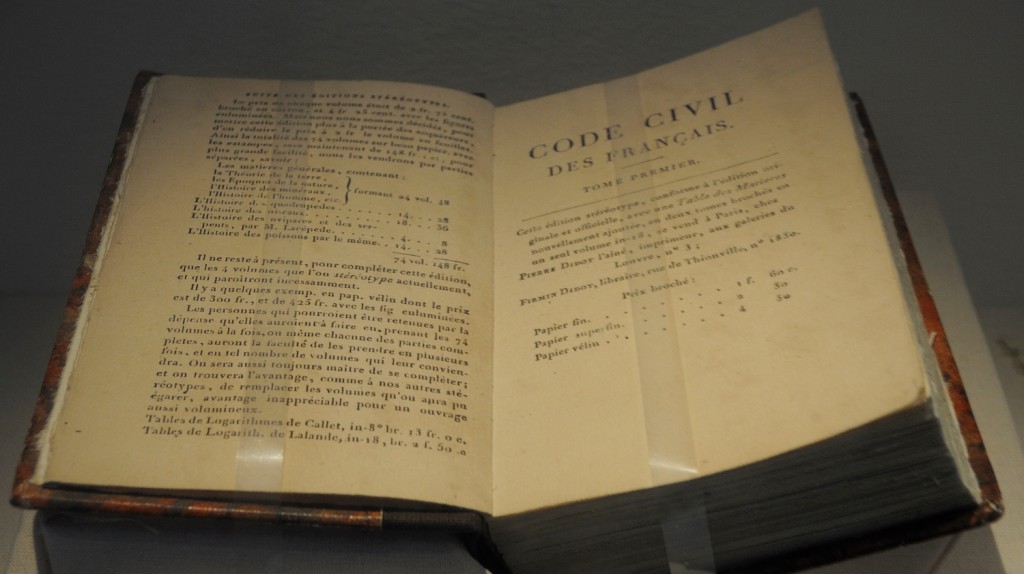 SUITE DES ÉDITIONS STÉRÉOTYPES.
Le prix de chaque volume étoit de 2 fr. 75 cent.
broché en et 4 fr 25 cent. avec les figures
enluminées. Mais nous nous sommes décidés, pour
mettre cette édition plus à la portée des acquéreurs,
d'en réduire le prix à 2 fr le volume en feuilles.
Ainsi la totalité des 74 volumes sur beau papier, avec
les estampes, sera maintenant de 148 fr : et, pour
plus grande facilité, nous les vendrons par parties
séparées, savoir :
Les matieres générales, contenant :
la Théorie de la terre,
les Epoques de la nature,
l'Histoire des minéraux,
l'Histoire de l'homme, etc } formant 24 vol. 48
L'Histoire des quadrupedes. . . . . . 14. . . 28
L'histoire des oiseaux. . . . . . . 18. . . 36
L'Histoire des ovipares et des ser-
pents, par M. Lacépede. . . . 4. . . 8
L'Histoire des poissons par le même. . 14. . . 28
74 vol. 148 fr.
Il ne reste à présent, pour compléter cette édition,
que les 4 volumes que l'on stéréotype actuellement,
et qui paroîtront incessamment.
Il y a quelques exemp. en pap. vélin dont le prix
est de 300 fr., et de 425 fr. avec les fig enluminées.
Les personnes qui pourroient être retenues par la
dépense qu'elles auroient à faire en prenant les 74
volumes à la fois, ou même chacune des parties com-
pletes, auront la faculté de les prendre en plusieurs
fois, et en tel nombre de volumes qui leur convien-
dra. On sera aussi toujours maître de se compléter;
et on trouvera l'avantage, comme à nos autres sté-
réotypes, de remplacer les volumes qu'on aura pu
égarer, avantage inappréciable pour un ouvrage
aussi volumineux.
Tables de Logarithmes de Callet, in-8º br. 13 fr. 0 c.
Tables de Logarith. de Lalande, in-18, br. 2 f. 50
CODE CIVIL
DES FRANÇAIS.
TOME PREMIER.
Cette édition stéréotype, conforme à l'édition ori-
ginale et officielle, avec une Table des Matieres
nouvellement ajoutée, en deux tomes brochés en
un seul volume in-18, se vend à Paris, chez
PIERRE DIDOT l'aîné, imprimeur, aux galeries du
Louvre, nº 3;
FIRMIN DIDOT, libraire, rue de Thionville, nº 1850.
Prix broché :
Papier fin. . . . . . . . 1 f. 60 c.
Papier superfin. . . . . . . 2 50
Papier vélin . . . . . . . 4 50